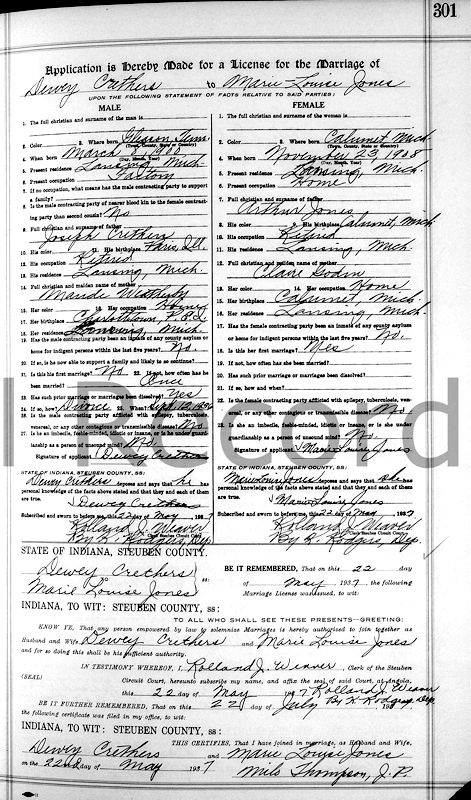 301
Application is Hereby Made for a License for the Marriage of
Dewey Crethers to Marie Louise Jones
UPON THE FOLLOWING STATEMENT OF FACTS RELATIVE TO SAID PARTIES:
MALE
1. The full christian and surname of the man is
2. Color 3. Where born Gleason, Tenn.
(Town, County, State or Country)
4. When born March 1900
(Day, Month, Year)
5. Present residence Lansing Mich.
6. Present occupation Factory
7. If no occupation, what means has the male contracting party to support
a family?
8. Is the male contracting party nearer of blood kin to the female contract-
ing party than second cousin? No
9. Full christian and surname of father
Joseph Crethers
11. His birthplace Paris, Ill.
12. His occupation Retired
13. His residence Lansing, Mich.
14. Full christian and maiden name of mother
Maude
15. Her color 16. Her occupation
17. Her birthplace
18. Her residence Lansing, Mich.
19. Has the male contracting party been an inmate of any county asylum
or home for indigent persons within the last five years? No.
20. If so, is he now able to support a family and likely to so continue?
21. Is this his first marriage? No 22. If not, how often has he been
married? Once
23. Has such prior marriage or marriages been dissolved? Yes
24. If so, how? Divorce 25. When? Sept. 12, 1936
26. Is the male contracting party afflicted with epilepsy, tuberculosis,
venereal, or any other contagious or transmissible disease? No
27. Is he an imbecile, feeble-minded, idiotic or insane, or is he under guard-
ianship as a person of unsound mind? No.
Signature of applicant Dewey Crethers
STATE OF INDIANA, STEUBEN COUNTY, SS:
Dewey Crethers deposes and says that he has
personal knowledge of the facts above stated and that they and each of them
are true. Dewey Crethers
Subscribed and sworn to before me this 22 day of May 1937
Rolland J. Weaver
Clerk Steuben Circuit Court
By K. Rodgers, Dep.
FEMALE
1. The full christian and surname of the woman is
2. Color 3. Where born Calumet, Mich
(Town, County, State or Country)
4. When born November 23, 1908
(Day, Month, Year)
5. Present residence Lansing, Mich.
6. Present occupation Home
7. Full christian and surname of father
Arthur Jones
8. His color 9. His birthplace Calumet, Mich
10. His occupation Retired
11. His residence Lansing, Mich.
12. Full christian and maiden name of mother
Claire
13. Her color 14. Her occupation Home
15. Her birthplace Calumet, Mich.
16. Her residence Lansing, Mich.
17. Has the female contracting party been an inmate of any county asylum
or home for indigent persons within the last five years? No.
18. Is this her first marriage? Yes
19. If not, how often has she been married?
20. Has such prior marriage or marriages been dissolved?
21. If so, how and when?
22. Is the female contracting party afflicted with epilepsy, tuberculosis, vene-
real, or any other contagious or transmissible disease? No
23. Is she an imbecile, feeble-minded, idiotic or insane, or is she under
guardianship as a person of unsound mind? No.
Signature of applicant Marie Louise Jones
STATE OF INDIANA, STEUBEN COUNTY, SS:
Marie Louise Jones deposes and says that she has
personal knowledge of the facts above stated and that they and each of
them are true. Marie Louise Jones
Subscribed and sworn to before me this 22 day of May 1937
Rolland J. Weaver
Clerk Steuben Circuit Court
By K. Rodgers, Dep.
STATE OF INDIANA, STEUBEN COUNTY.
Dewey Crethers
Marie Louise Jones
ss:
BE IT REMEMBERED, That on this 22 day
of May 1937, the following
Marriage License was issued, to wit:
INDIANA, TO WIT: STEUBEN COUNTY, ss:
TO ALL WHO SHALL SEE THESE PRESENTS—GREETING:
KNOW YE, That any person empowered by law to solemnize Marriages is hereby authorized to join together as
Husband and Wife Dewey Crethers and Marie Louise Jones
and for so doing this shall be his sufficient authority.
IN TESTIMONY WHEREOF, I, Rolland J. Weaver, Clerk of the Steuben
(SEAL) Circuit Court, hereunto subscribe my name, and affix the seal of said Court, at Angola,
this 22 day of May 1937 Rolland J. Weaver
By K. Rodgers, Dep.
BE IT FURTHER REMEMBERED, That on this 22 day of July 193
the following certificate was filed in my office, to wit:
INDIANA, TO WIT: STEUBEN COUNTY, ss:
THIS CERTIFIES, That I have joined in marriage, as Husband and Wife,
Dewey Crethers and Marie Louise Jones
on the 22nd day of May 1937 Milo Thompson, J. P.
l Record